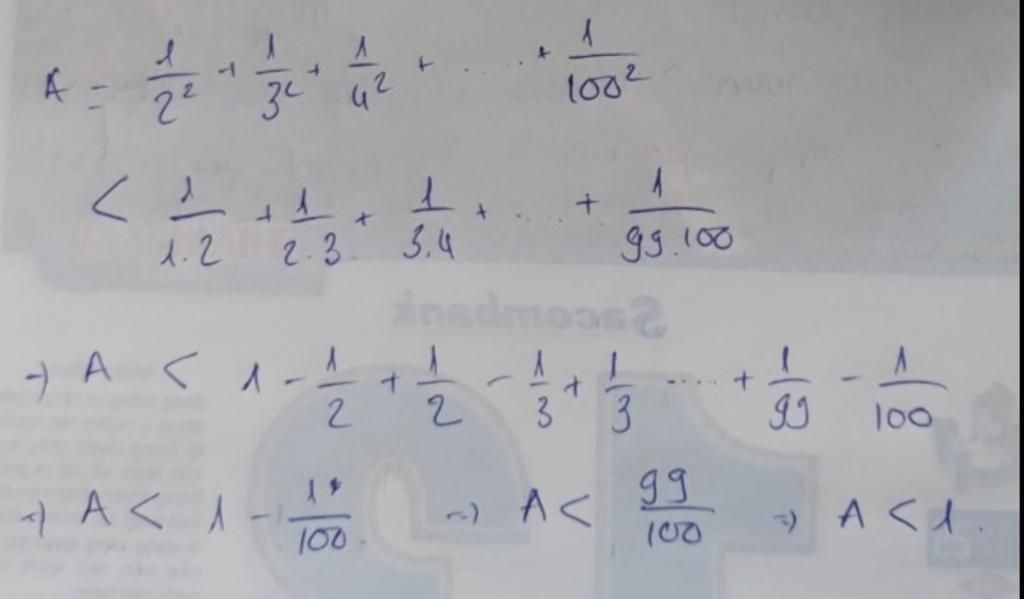 A = 1/2² + 1/3² + 1/4² + ..... + 1/100²
< 1/1.2 + 1/2.3 + 1/3.4 + ..... + 1/99.100
Sacombank
=) A < 1 - 1/2 + 1/2 - 1/3 + 1/3 ..... + 1/99 - 1/100
=) A < 1 - 1/100 =) A < 99/100 =) A < 1.